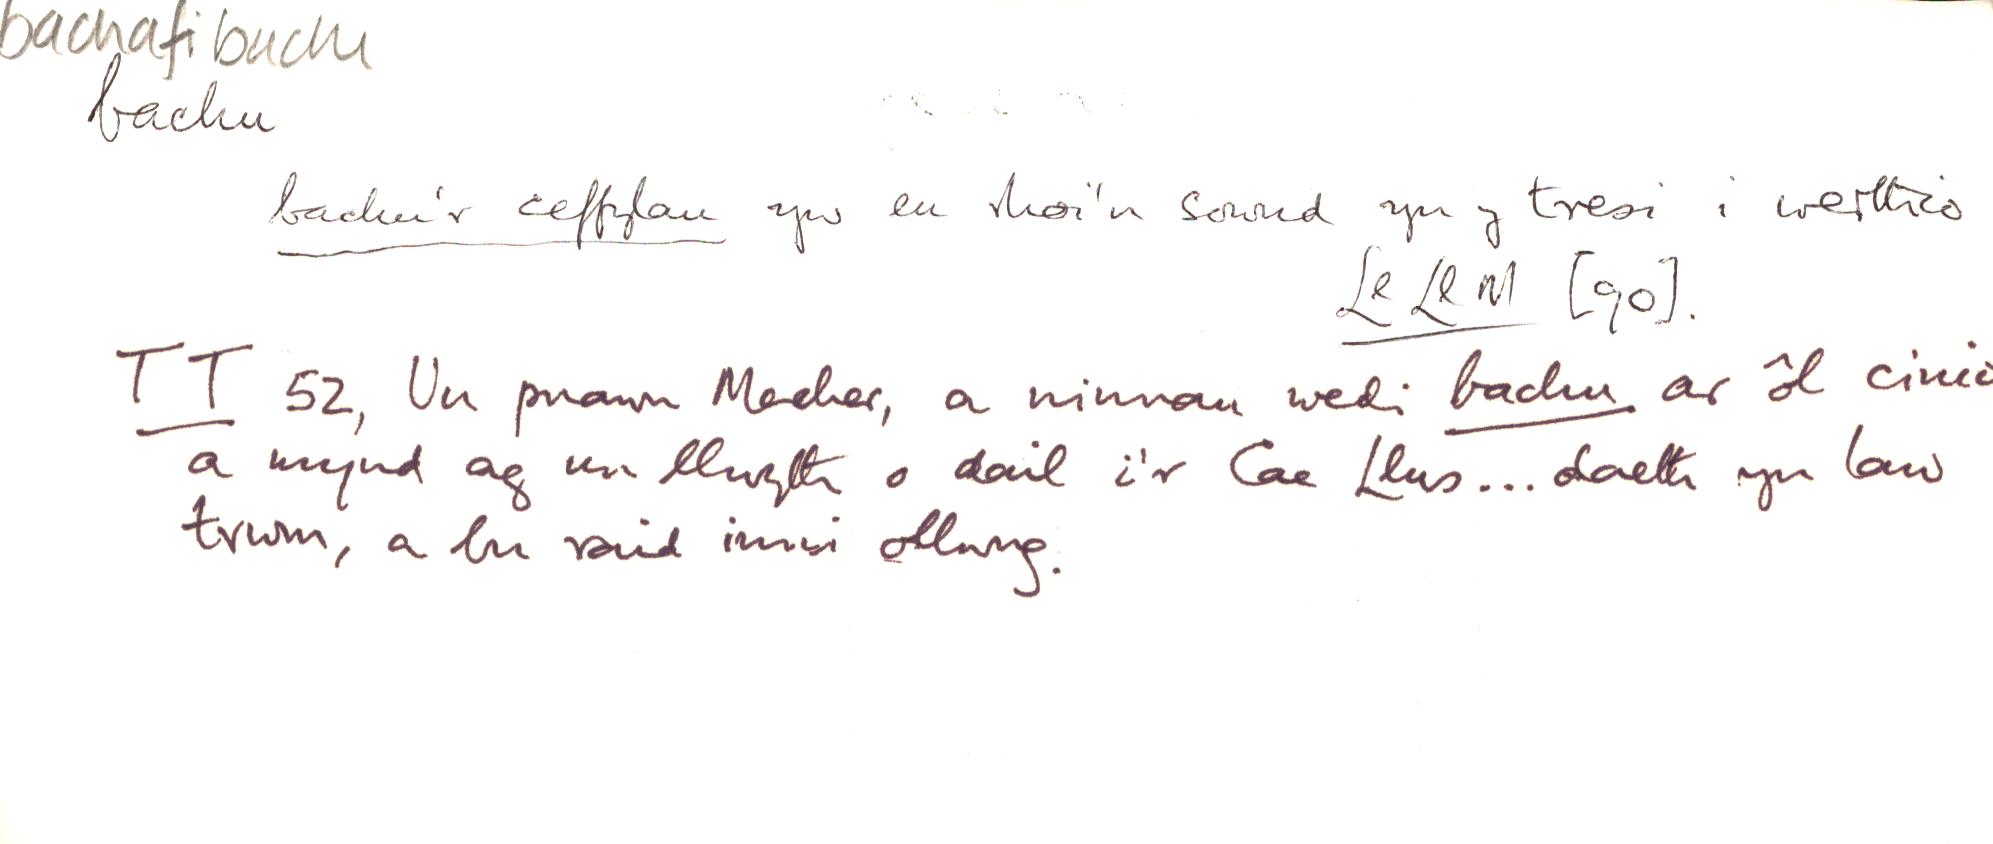 bachaf: bachu
bachu
bachu'r ceffylau yw eu rhoi'n sownd yn y tresi i weithio
Ll Ll M [90].
TT 52, Un pnawn Mercher, a ninnau wedi bachu ar ôl cinio
a mynd ag un llwyth o dail i'r Cae Llus... daeth yn law
trwm, a bu raid inni ollwng.